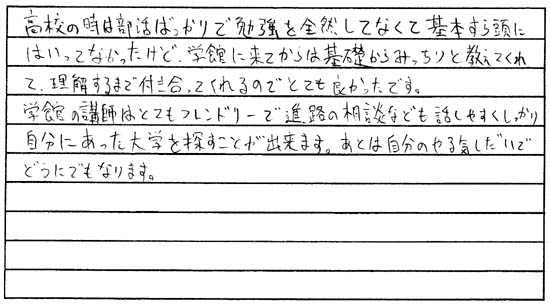 高校の時は部活ばっかりで勉強を全然してなくて基本すら頭に
はいってなかったけど、学館に来てからは基礎からみっちりと教えてくれ
て、理解するまで付き合ってくれるのでとても良かったです。
学館の講師はとてもフレンドリーで進路の相談なども話しやすくしっかり
自分にあった大学を探すことが出来ます。あとは自分のやる気しだいで
どうにでもなります。